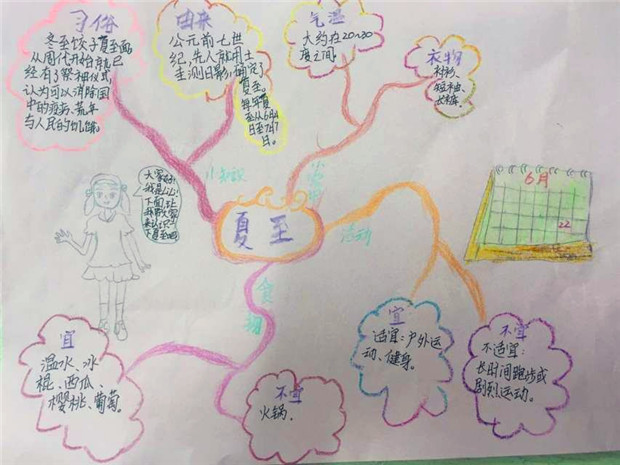 习俗
冬至饺子夏至面
从周代开始就已
经有了祭神仪式
认为可以消除国
中的疫病、荒年
与人民的饥饿。
由来
公元前七世
纪,先人就用土
圭测日影,确定了
夏至。
每年夏
至从6月21
日至7月7
日。
气温
大约在20~30
度之间。
衣物
衬衫、
短袖、
小知识
大家好!
夏至
活动
食物
6月
22
宜
温水、冰
棍、西瓜、
樱桃、葡萄。
不宜
火锅.
宜
适宜:户外运
动、健身。
不宜
不适宜:
长时间跑步或
剧烈运动。